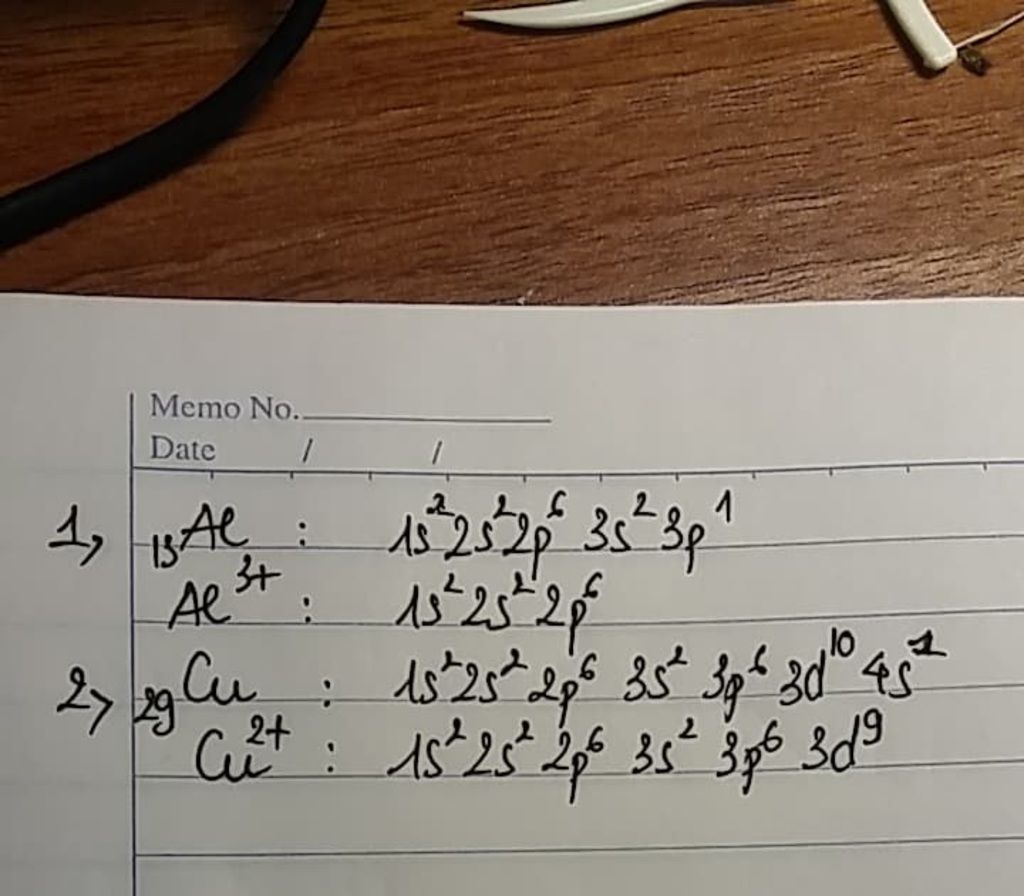 Memo No.
Date / /
1, ₁₃Al : 1s²2s²2p⁶ 3s²3p¹
Al³⁺ : 1s²2s²2p⁶
2, ₂₉Cu : 1s²2s²2p⁶ 3s² 3p⁶ 3d¹⁰ 4s¹
Cu²⁺ : 1s²2s²2p⁶ 3s² 3p⁶ 3d⁹